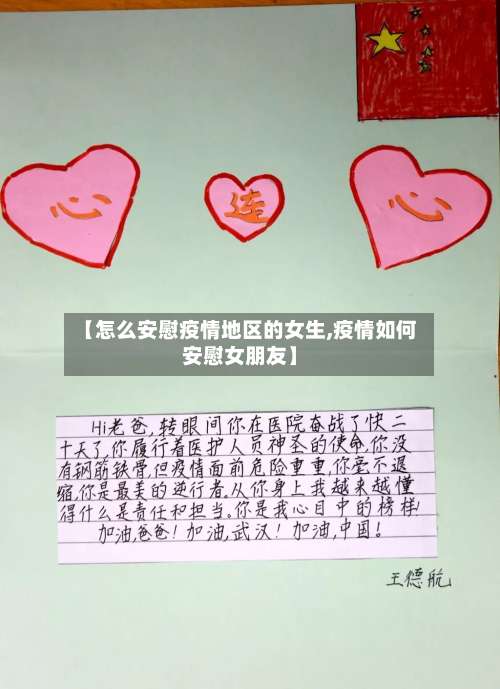 心 连 心
【怎么安慰疫情地区的女生,疫情如何
安慰女朋友】
Hi老爸,转眼间你在医院奋战了快二
十天了,你履行着医护人员神圣的使命,你没
有钢筋铁骨但疫情面前危险重重,你毫不退
缩,你是最美的逆行者,从你身上我越来越懂
得什么是责任和担当,你是我心目中的榜样!
加油,爸爸!加油,武汉!加油,中国!
王德航